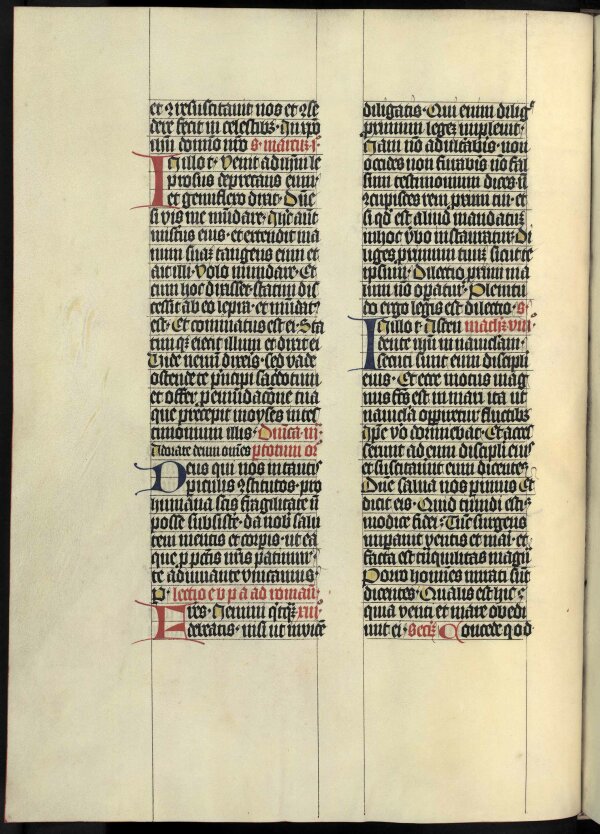 et ꝯresuscitauit nos et ꝯse
dere fecit in celestibꝫ · In xpo
ihu domino nro s· marcū i·
In illo t· Venit ad ihm le
prosus deprecans eum·
et genuflexo dixit · Dne
si vis me mūdare · Ihc aūt
misertus eius · et extendit ma
num suā tangens eum et
ait illi · Volo mundare · Et
cum hoc dixisset statim dis
cessit ab eo lepra · et mūdat
est · Et comminatus est ei · Sta
tim qꝫ eiecit illum et dixit ei
Vide nemini dixeris · sed vade
ostende te pricipi sacdotum
et offer p emūdacōne tua
que precepit moyses in tes
timonium illis · Dūica iiij·
Adorate deum omēs ꝑ totum or
Deus qui nos in tantis
periculis ꝯstitutos · pro
humana scis fragilitate n̄
posse subsiste · da nob salu
tem mentis et corpis · ut ea
que p pctīs nris patimur·
te adiuuante vincamus·
P· lectio e b p a ad roman·
Fres · Nemini qcqꝫ xiij·
debeatis · nisi ut invicē
diligatis · Qui enim dilig
primum legē impleuit ·
Nam nō adulᵗabis · non
occides non furabis nō fal
sum testimonium dices n̄
ꝯcupisces rem primi tui · et
si qd est aliud mandatū
in hoc vbo instauratur · Di
liges primum tuū sicut te
ipsum · Dilectio primi ma
lum nō opatur · Plenitu
do ergo legis est dilectio · s·
In illo t· Ascen matheū viii·
dente ihu in nauiclam·
secuti sunt eum discipli
eius · Et ecce motus mag
nus fcs est in mari ita ut
nauicla opiretur fluctibꝫ
ipe vo dormiebat · Et acces
serunt ad eum discipli eius
et suscitauit eum dicentes
Dne salua nos perimus Et
dicit eis · Quid timidi estis
modice fidei · Tūc surgens
imparuit ventis et mari · et
facta est trāquilitas magn
Porro homines mirati sūt
dicentes · Qualis est hic ·
quia venti et mare obedi
unt ei · Secʳ Concede qs o